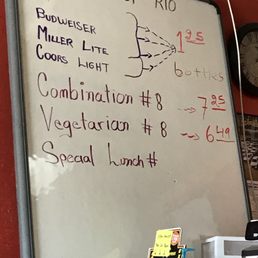 RIO
BUDWEISER
MILLER LITE 1 95
COORS LIGHT bottles
Combination # 8 → 7 25
Vegetarian # 8 → 6 49
Special Lunch #